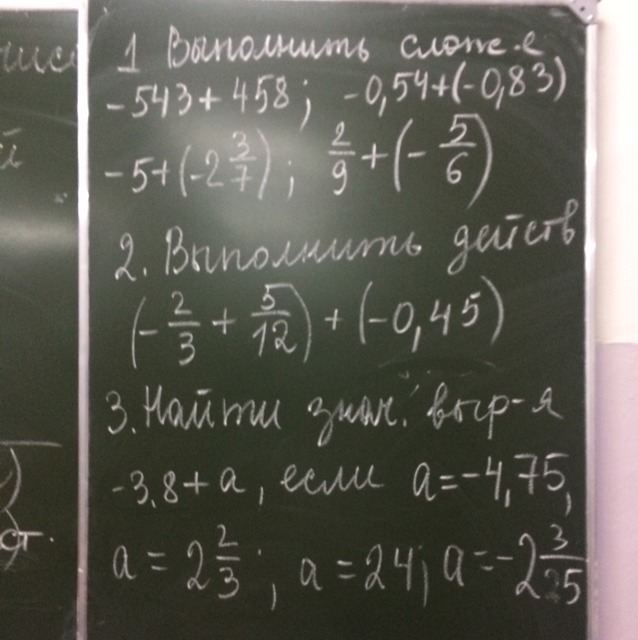 1 Выполнить сложе-е
-543+458; -0,54+(-0,83)
-5+(-2 3/7); 2/9+(-5/6)
2. Выполнить действ
(-2/3+5/12)+(-0,45)
3. Найти знач. выр-я
-3,8+a, если a=-4,75,
a=2 2/3; a=24; a=-2 3/25